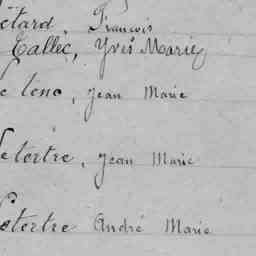 étard, François
Tallec, Yves Marie
e tenc, Jean Marie
etertre, Jean Marie
etertre André Marie